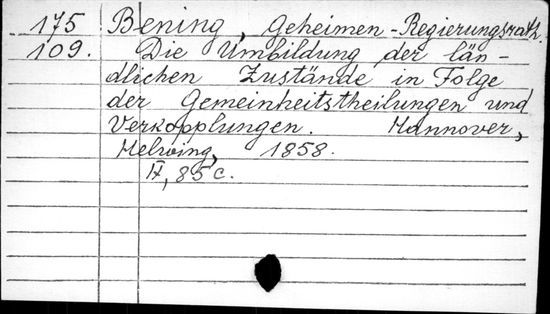 175 Bening, Geheimen-Regierungsrath.
109. Die Umbildung der län-
dlichen Zustände in Folge
der Gemeinheitstheilungen und
Verkopplungen. Hannover,
Helwing, 1858.
IV, 85 c.